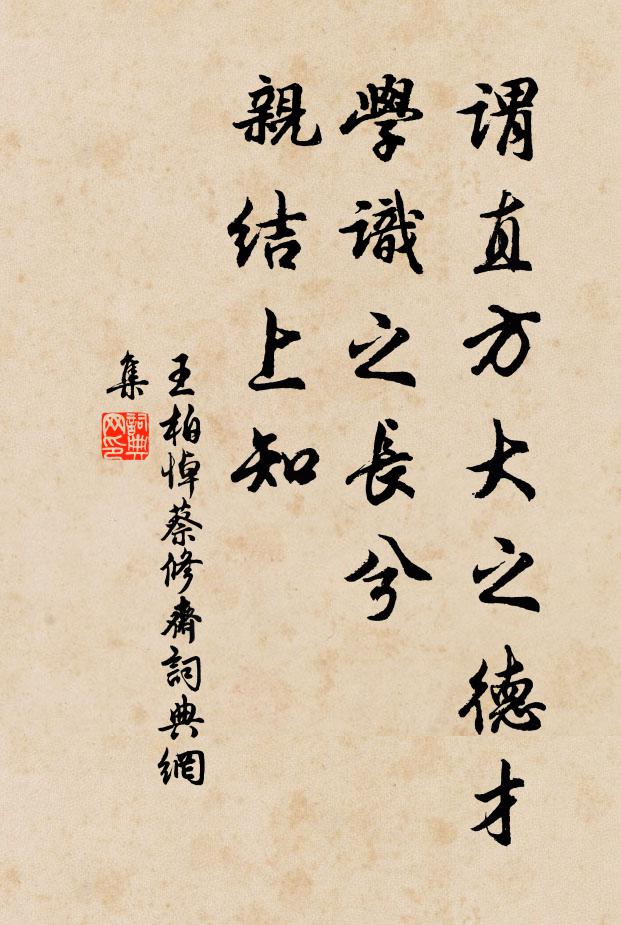 謂直方大之德才
學識之長兮
親結上知
王柏悼蔡修齋詞典網
集
詞典网印